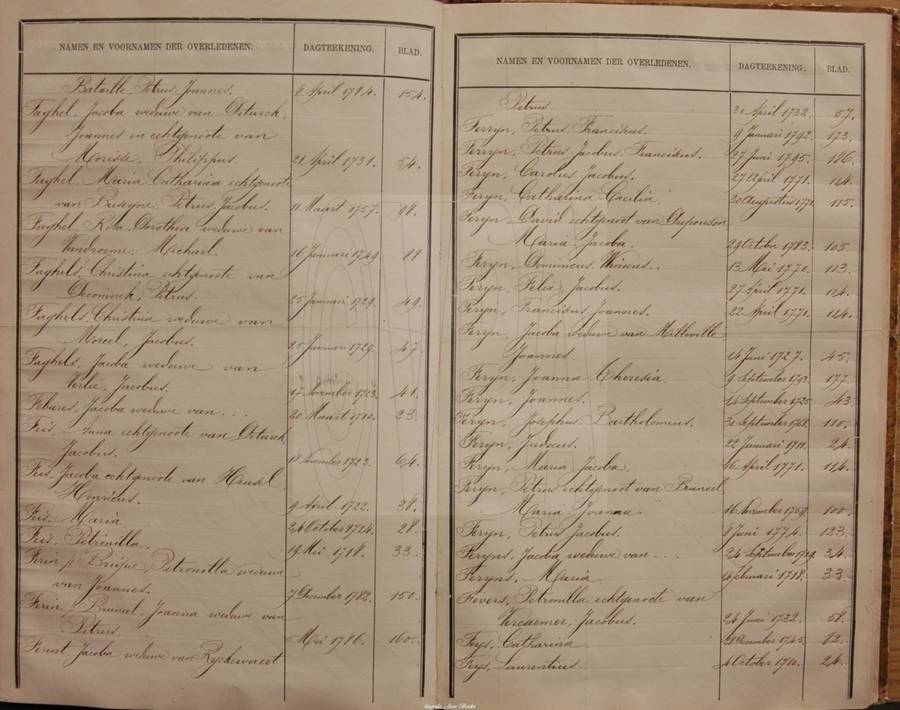 NAMEN EN VOORNAMEN DER OVERLEDENEN. DAGTEEKENING. BLAD.
Bataille, Petrus Joannes. 8 April 1784. 154.
Faghel, Jacoba weduwe van Deturck,
Joannes en echtgenoote van
Morisse, Philippus. 21 April 1731. 54.
Faghel, Maria Catharina echtgenoote
van Buseyne, Petrus Jacobus. 11 Maart 1757. 98.
Faghel, Rosa Dorothea weduwe van
Vandroeme, Michael. 16 Januari 1749. 88
Faghels, Christina echtgenoote van
Deconinck, Petrus. 25 Januari 1729. 49.
Faghels, Christina weduwe van
Morcel, Jacobus. 25 Januari 1729. 47.
Faghels, Jacoba weduwe van
Verlie, Jacobus. 17 November 1723. 41.
Febures, Jacoba weduwe van ... 20 Maart 1710. 23.
Feis, Anna echtgenoote van Deturck,
Jacobus. 18 November 1723. 64.
Feis, Jacoba echtgenoote van
Henricus. 9 April 1722. 38.
Feis, Maria 24 October 1714. 28.
Feis, Petronilla. 19 Mei 1718. 33.
Ferin, Petronilla weduwe
van Joannes. 7 December 1782. 150.
Ferin, Joanna weduwe van
Petrus. Mei 1786. 160.
Jacoba weduwe van Ryckewaert
NAMEN EN VOORNAMEN DER OVERLEDENEN. DAGTEEKENING. BLAD.
Petrus. 30 April 1732. 57.
Ferryn, Petrus Franciscus. 9 Januari 1792. 173.
Ferryn, Petrus Jacobus Franciscus. 27 Juni 1795. 186.
Feryn, Carolus Jacobus. 27 April 1771. 114.
Feryn, Catharina Cecilia. 20 Augustus 1771. 115.
Feryn, David echtgenoot van
Maria Jacoba. 29 October 1763. 105
Feryn, Dominicus Winocus. 13 Mei 1770. 113.
Feryn, Felix Jacobus. 27 April 1771. 114.
Feryn, Franciscus Joannes. 22 April 1771. 114.
Feryn, Jacoba weduwe van Milleville
Joannes. 14 Juni 1727. 45.
Feryn, Joanna Theresia. 9 September 1793. 177.
Feryn, Joannes. 14 September 1725. 43
Feryn, Josephus Bartholomeus. September
Feryn, Judocus. 22 Januari 1711. 24.
Feryn, Maria Jacoba. 16 April 1771. 114.
Feryn, Petrus echtgenoot van Bruneel,
Maria Joanna. 16 November 1759. 100.
Feryn, Petrus Jacobus. 8 Juni 1774. 123.
Feryns, Jacoba weduwe van ... 24 September 34.
Feryns, Maria Februari 1718. 33.
Fevers, Petronilla echtgenoote van
Vercaemer, Jacobus. 24 Juni 1732. 58.
Feys, Catharina December 1745. 82.
Feys, Laurentius. October 1710. 24.